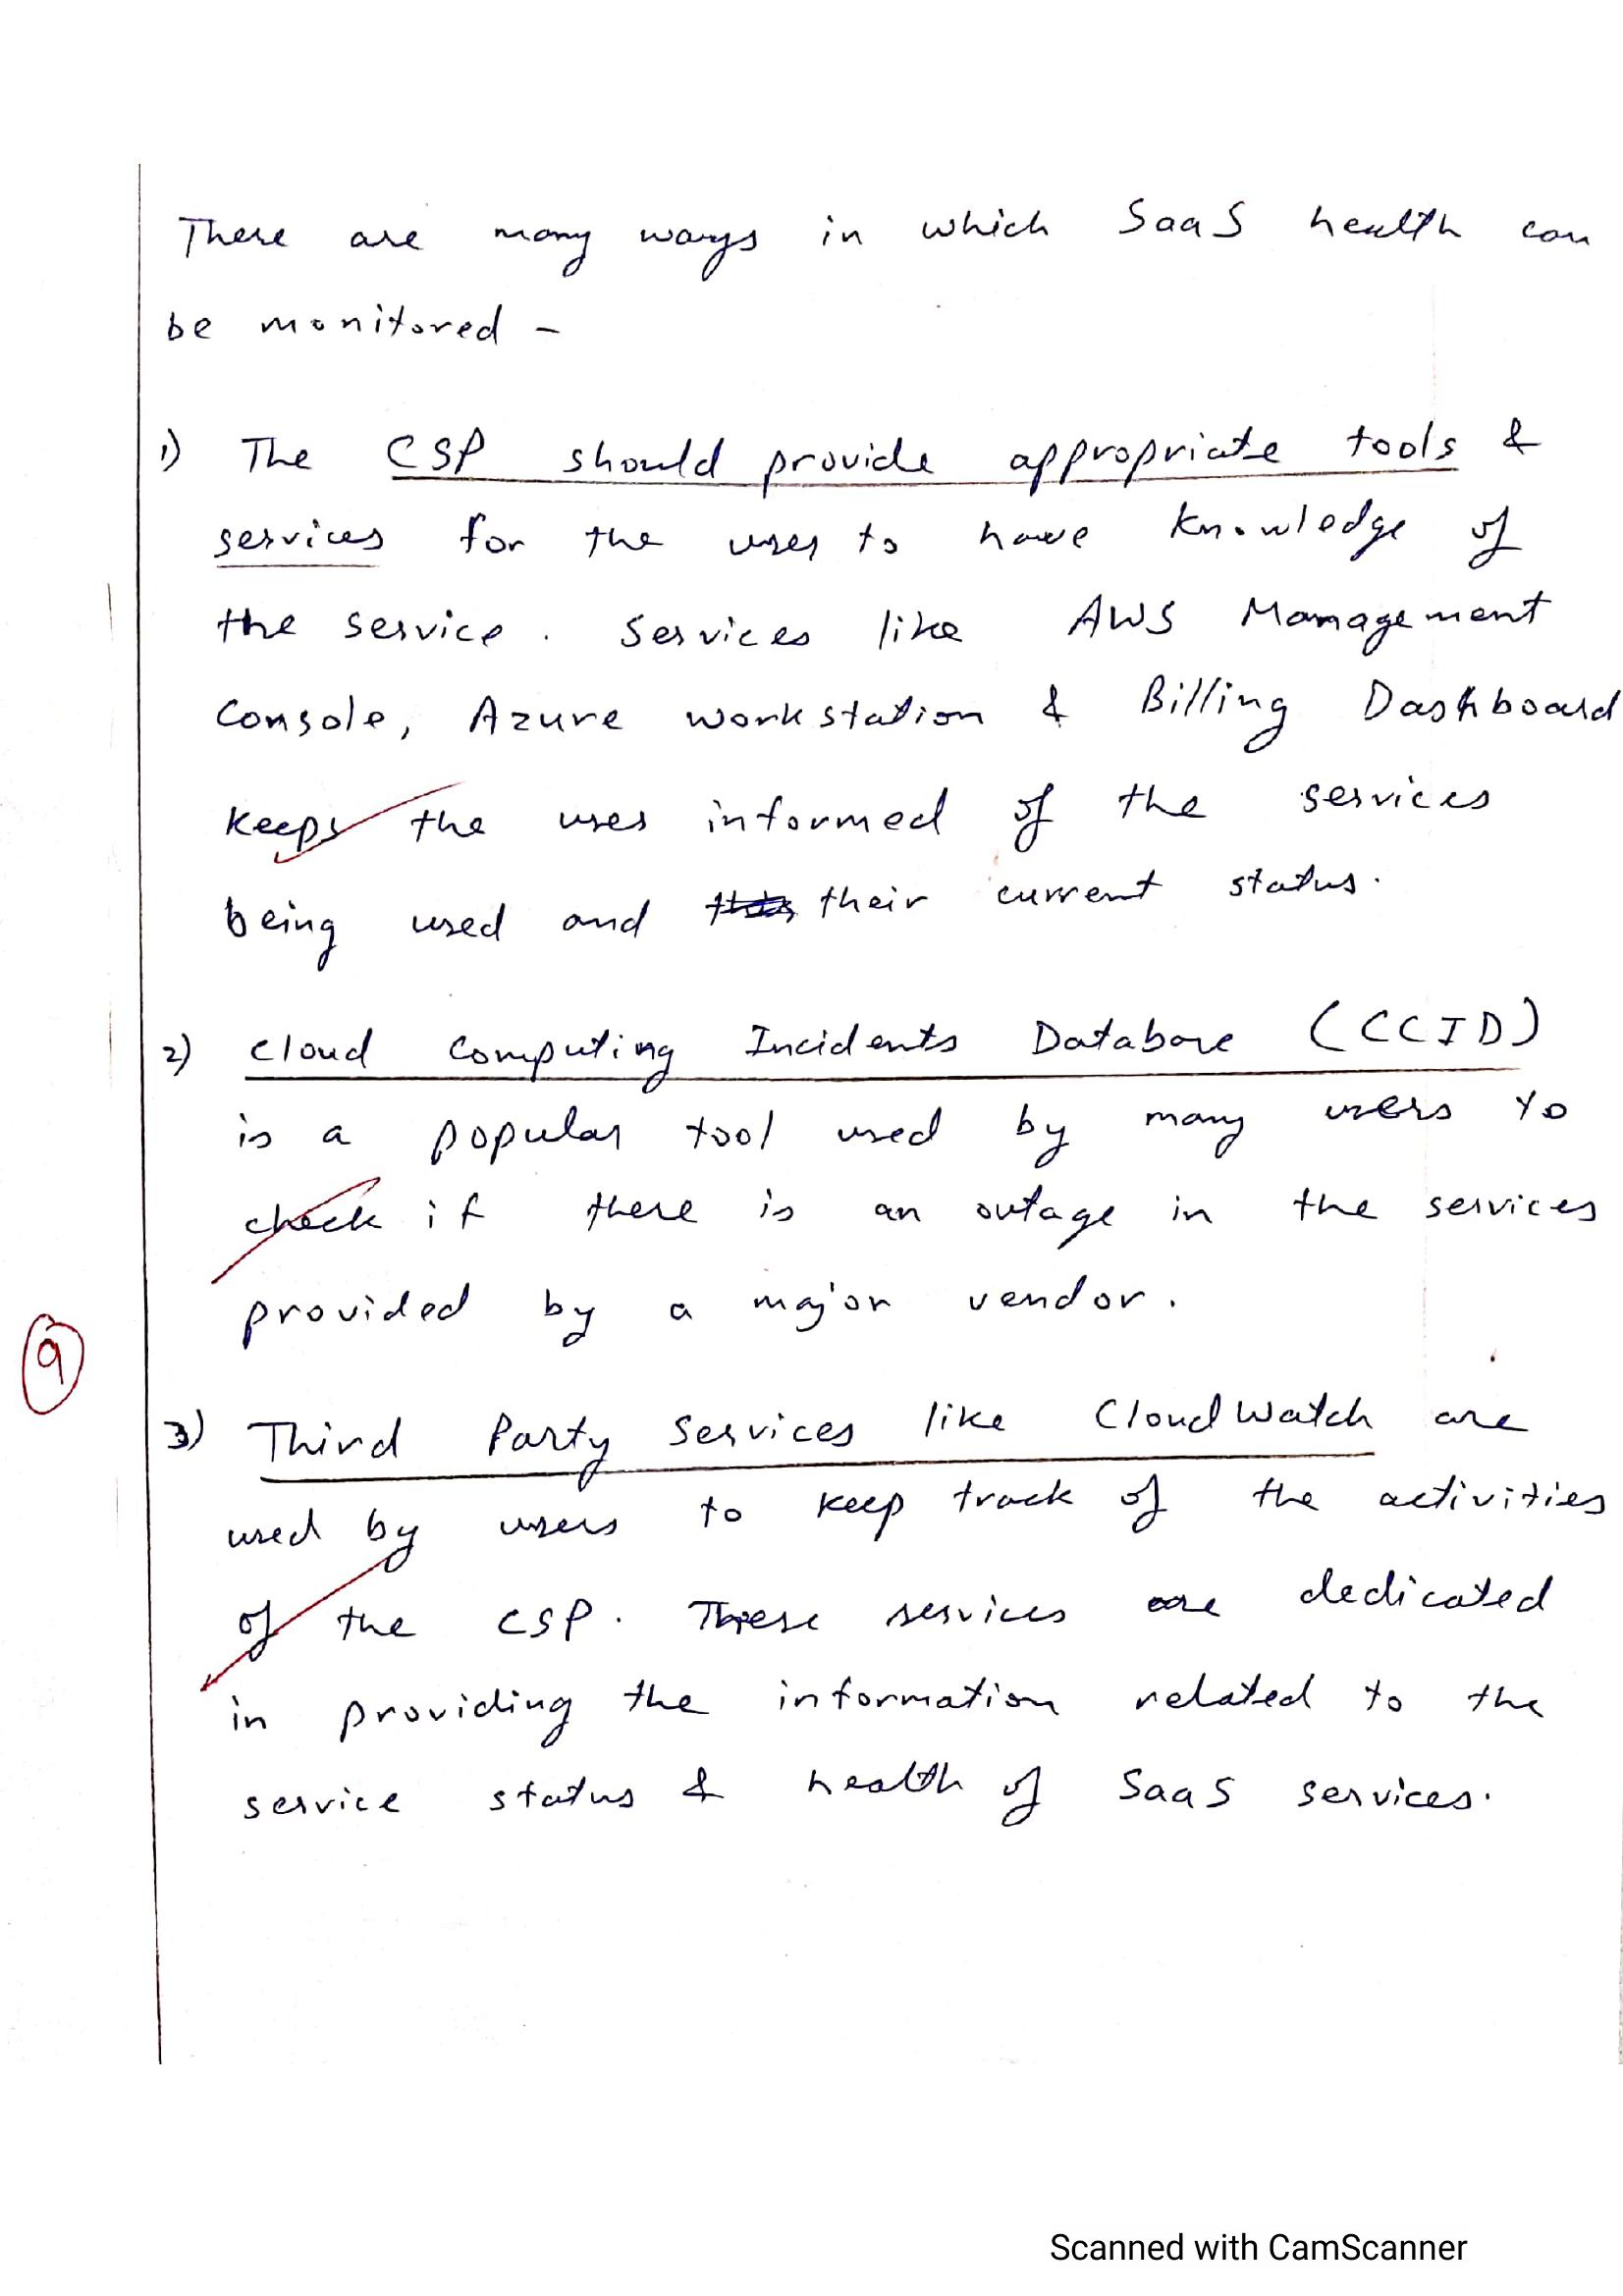 There are many ways in which SaaS health can
be monitored -
1) The CSP should provide appropriate tools &
services for the user to have knowledge of
the service. Services like AWS Management
Console, Azure workstation & Billing Dashboard
keeps the user informed of the services
being used and their current status.
2) Cloud Computing Incidents Database (CCID)
is a popular tool used by many users to
check if there is an outage in the services
provided by a major vendor.
9
3) Third Party Services like CloudWatch are
used by users to keep track of the activities
of the CSP. These services are dedicated
in providing the information related to the
service status & health of SaaS services.
Scanned with CamScanner